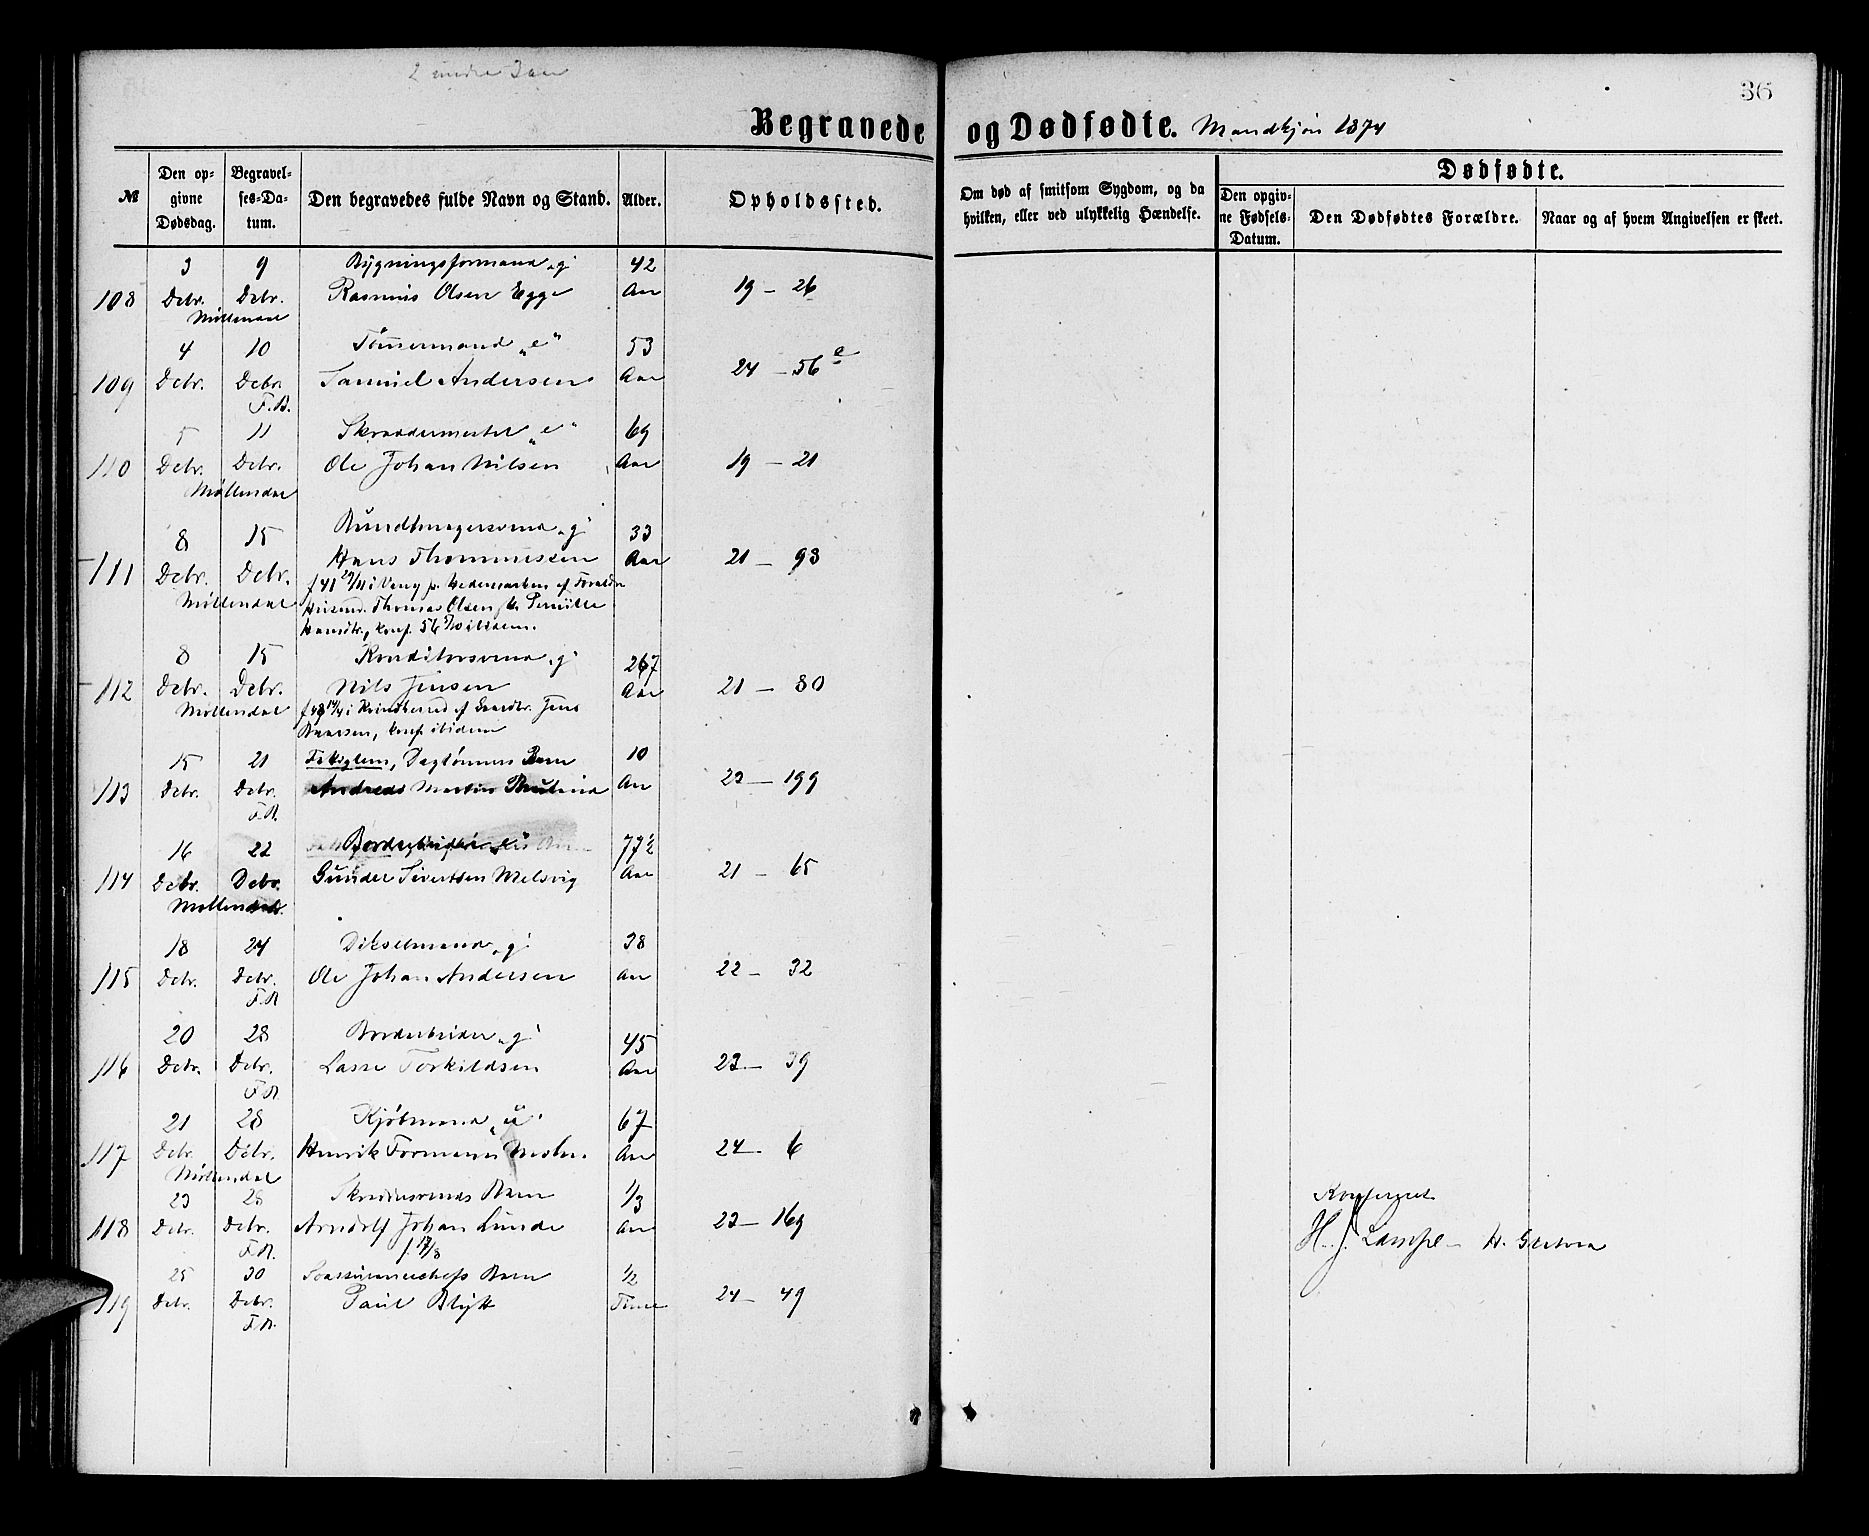 36
Begravede og Dødfødte. Mandkjøn 1874
№
Den opgivne Dødsdag.
Begravelses-Datum.
Den begravedes fulde Navn og Stand.
Alder.
Opholdssted.
Om død af smitsom Sygdom, og da hvilken, eller ved ulykkelig Hændelse.
Dødfødte.
Den opgivne Fødsels-Datum.
Den Dødfødtes Forældre.
Naar og af hvem Angivelsen er skeet.
3 9 Bygningsformand „g" 42
108 Debr. Debr. Rasmus Olsen Egge Aar 19 — 26
Møllendal
4 10 Tømmermand „e" 53
109 Debr. Debr. Samuel Andersen Aar 24 — 56 a
F.B.
5 11 Skræddermester „e" 69
110 Debr. Debr. Ole Johan Nilsen Aar 19 — 21
Møllendal
8 15 Bundtmagersvend „g" 33
111 Debr. Debr. Hans Thommesen Aar 21 — 93
Møllendal f 41 29/11 i Vang p. Hedemarken af Forældre
Husmd. Thomas Olsen Pernille
Hansdtr., konf. 56
8 15 Konditorsvend „g" 267
112 Debr. Debr. Nils Jensen Aar 21 — 80
Møllendal i Kvindherred af Gaardbr. Jens
konf. ibidem
15 21 Dagtønners Barn 10
113 Debr. Debr. Andreas Martin Aar 23 — 199
F.B.
16 22 Bordarbeider 77½
114 Debr. Debr. Gunder Sivertsen Melsvig Aar 21 — 65
Møllendal
18 24 Dikselmand „g" 38
115 Debr. Debr. Ole Johan Andersen Aar 22 — 32
F.B.
20 28 Bordarbeider „g" 45
116 Debr. Debr. Lasse Torkildsen Aar 23 — 39
F.B.
21 28 Kjøbmand „u" 67
117 Debr. Debr. Henrik Formann Aar 24 — 6
Møllendal
23 28 Skræddersvends Barn 1/3
118 Debr. Debr. Arndolf Johan Lunde Aar 23 — 169
F.B. f. 17/8
25 30 Barn 1/2
119 Debr. Debr. Paul Blytt Time 24 — 49
F.B.
Konfereret
H. J. Lampe